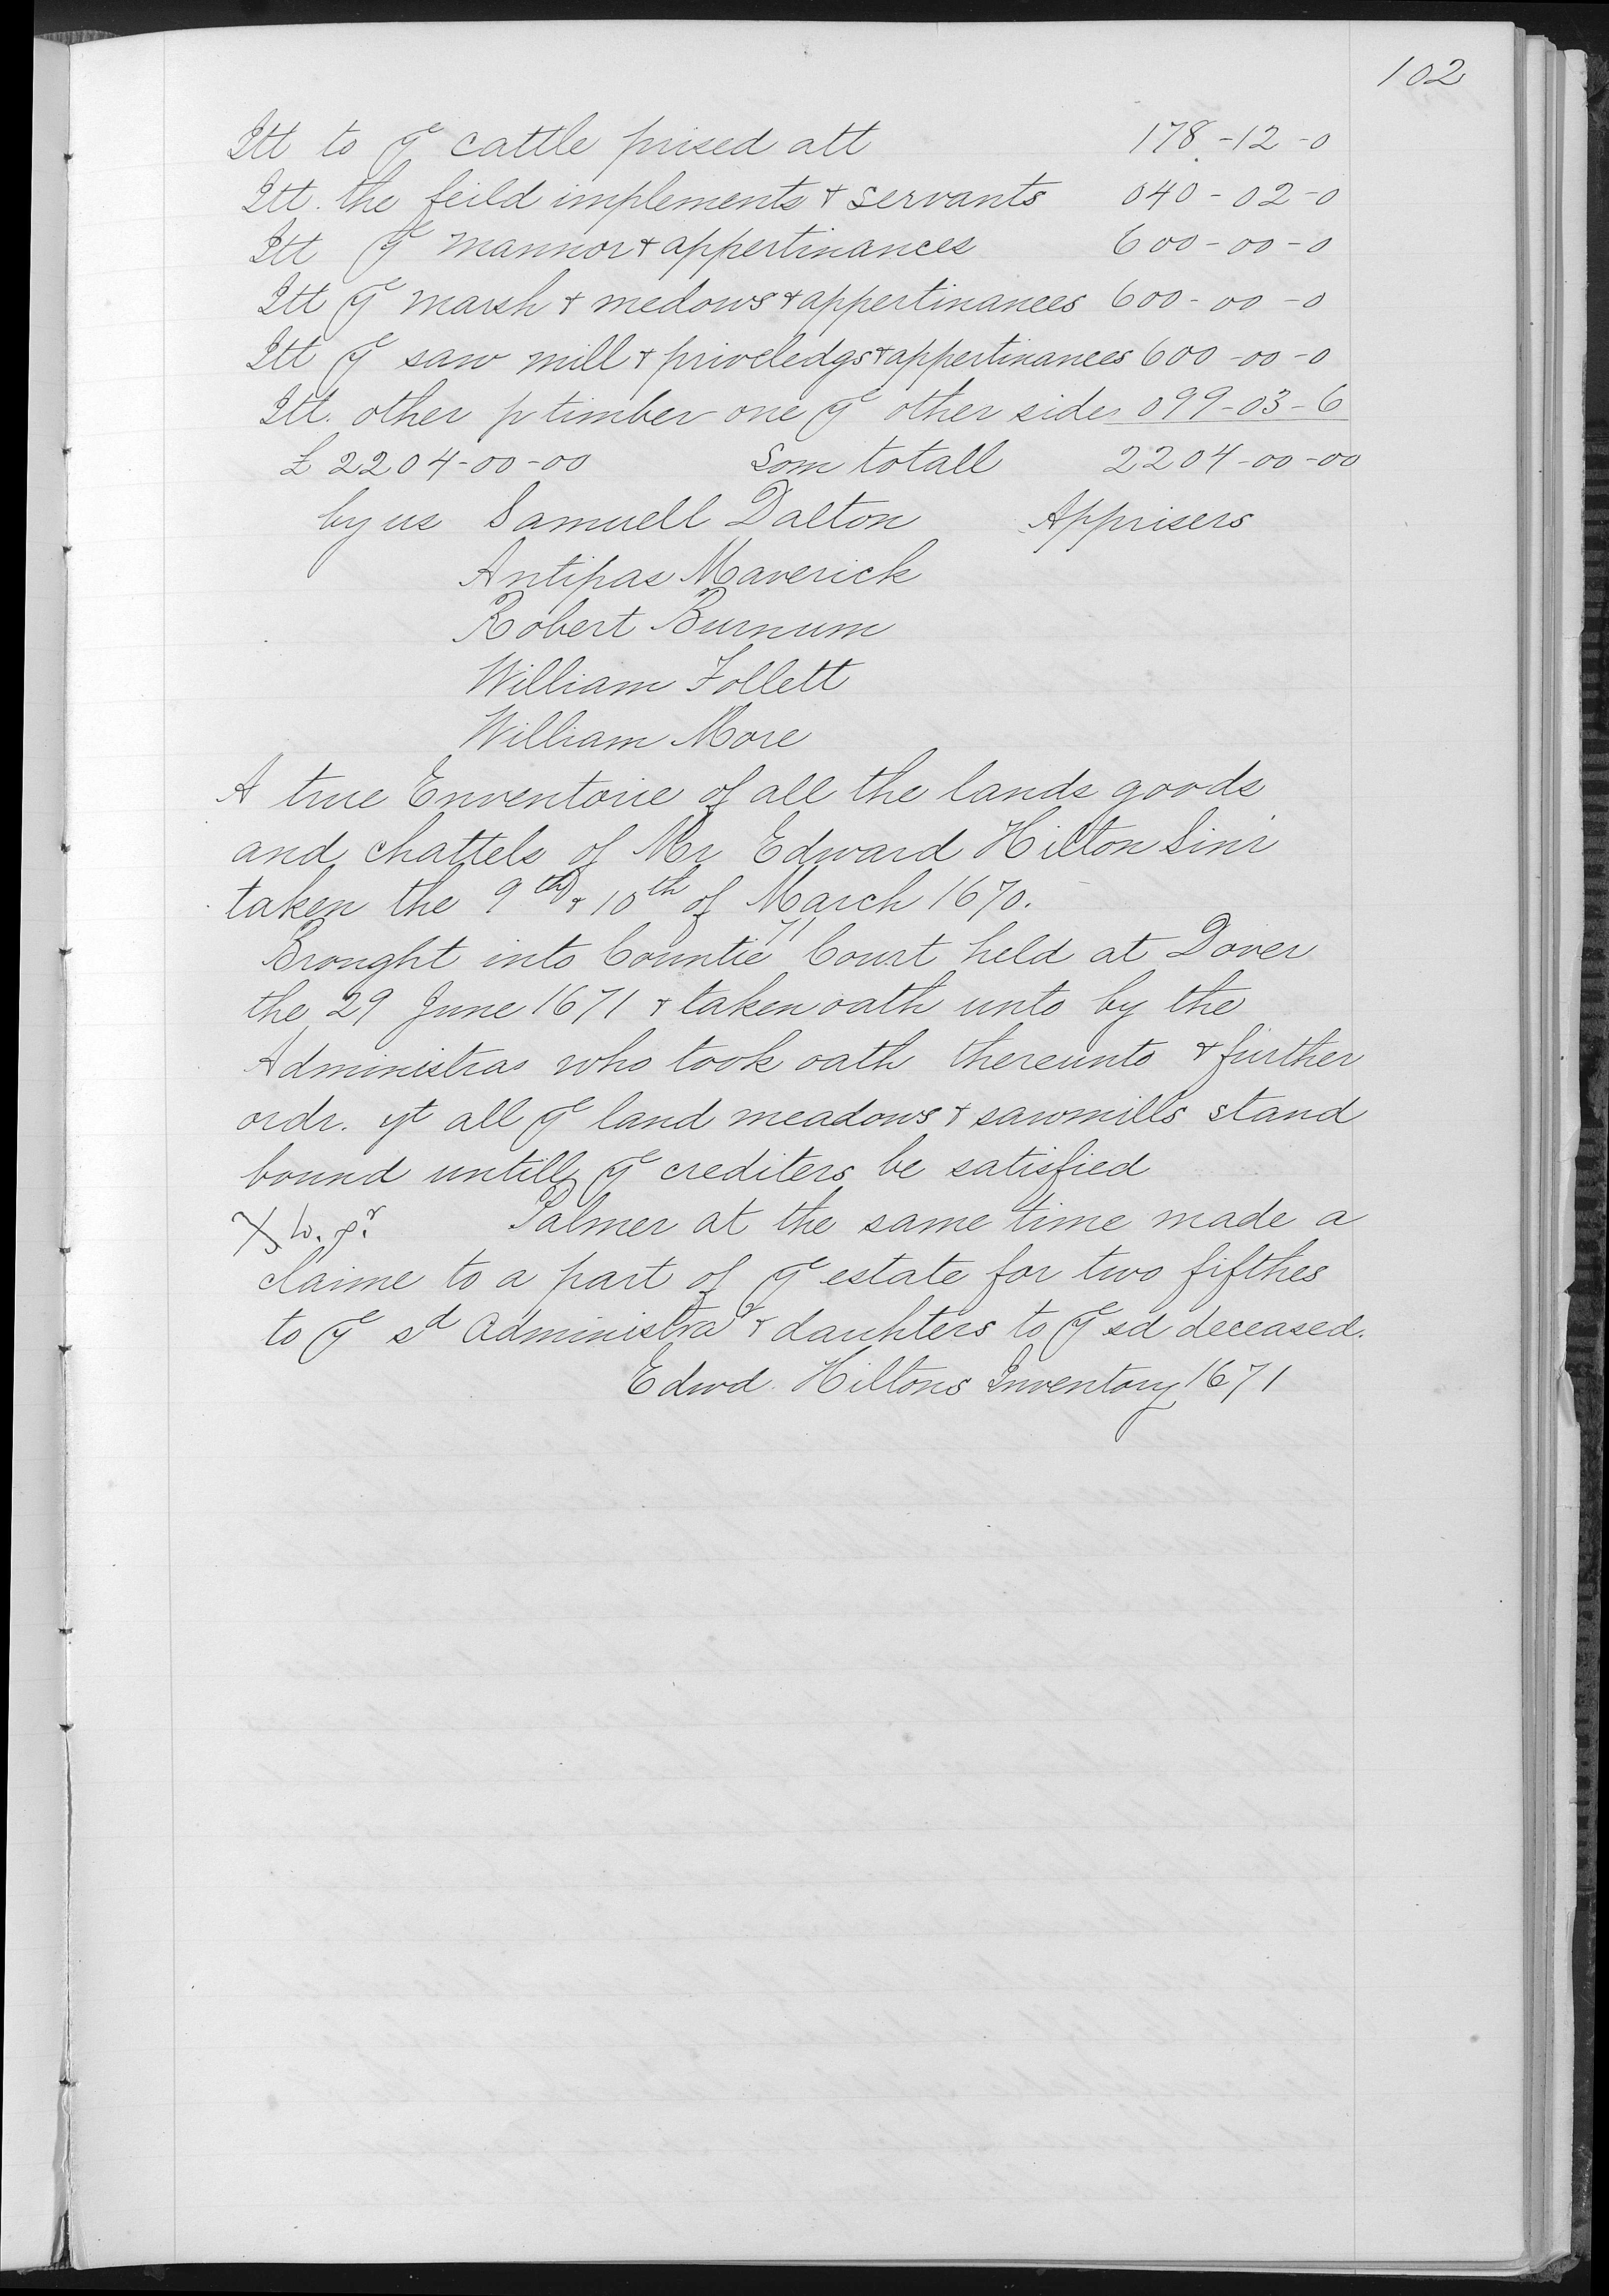 102
Itt to ye cattle prised att 178-12-0
Itt. the feild implements & servants 040-02-0
Itt ye mannor & appertinances 600-00-0
Itt ye marsh & medows & appertinances 600-00-0
Itt ye saw mill & priveledgs & appertinances 600-00-0
Itt. other p timber one ye other side 099-03-6
£ 2204-00-00 Som totall 2204-00-00
by us Samuell Dalton Apprisers
Antipas Maverick
Robert Burnum
William Follett
William More
A true Enventorie of all the lands goods
and chattels of Mr Edward Hilton Sinr
taken the 9th & 10th of March 1670.
71
Brought into Countie Court held at Dover
the 29 June 1671 & taken oath unto by the
Administras who took oath thereunto & further
ordr. yt all ye land meadows & sawmills stand
bound untill ye crediters be satisfied
Palmer at the same time made a
claime to a part of ye estate for two fifthes
to ye sd Administrar & dauhters to ye sd deceased.
Edwd. Hiltons Inventory 1671